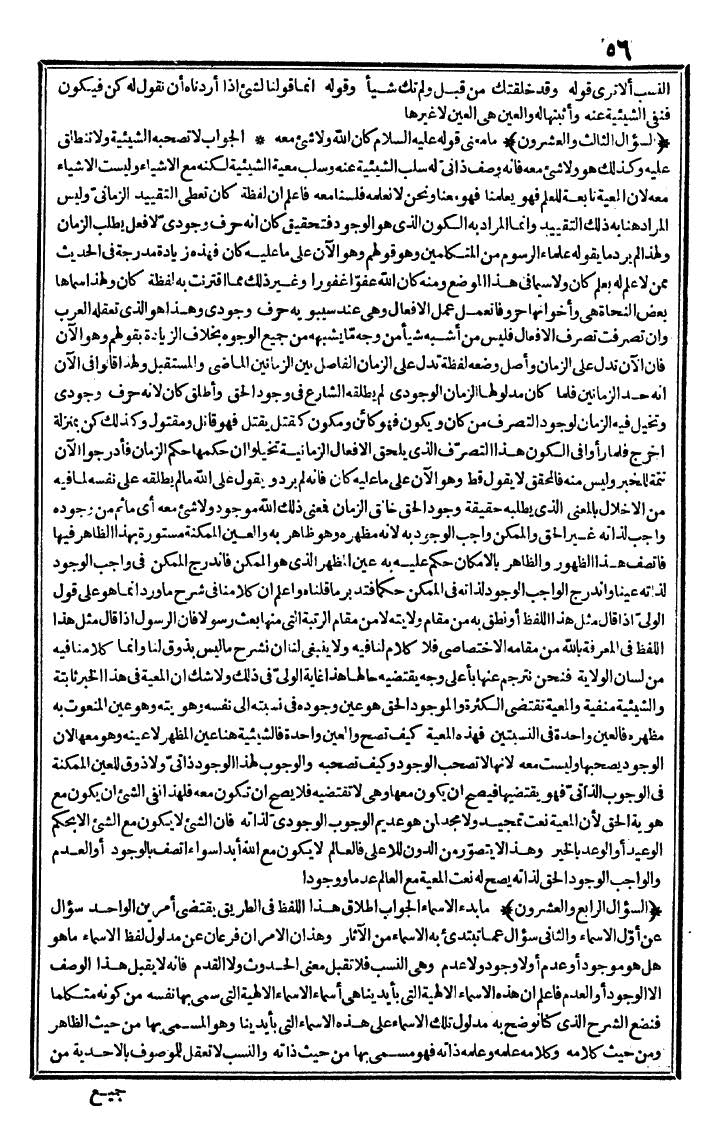 ٥٦
النسب ألا ترى قوله وقد خلقتك من قبل ولم تك شيأ وقوله انما قولنا لشئ اذا أردناه أن نقول له كن فيكون
فنفى الشيئية عنه وأثبتها له والعين هى العين لا غيرها
﴿السؤال الثالث والعشرون﴾ ما معنى قوله عليه السلام كان الله ولا شئ معه * الجواب لا تصحبه الشيئية ولا تنطلق
عليه وكذلك هو ولا شئ معه فانه وصف ذاتى له سلب الشيئية عنه وسلب معية الشيئية لكنه مع الاشياء وليست الاشياء
معه لان المعية نابعة للعلم فهو يعلمنا فهو معنا ونحن لا نعلمه فلسنا معه فاعلم ان لفظة كان تعطى التقييد الزمانى وليس
المراد هنا به ذلك التقييد وانما المراد به الكون الذى هو الوجود فتحقيق كان انه حرف وجودى لا فعل يطلب الزمان
ولهذا لم يرد ما يقوله علماء الرسوم من المتكلمين وهو قولهم وهو الآن على ما عليه كان فهذه زيادة مدرجة فى الحديث
ممن لا علم له بعلم كان ولا سيما فى هذا الموضع ومنه كان الله عفوّا غفورا وغير ذلك مما اقترنت به لفظة كان ولهذا سماها
بعض النحاة هى وأخواتها حروفا تعمل عمل الافعال وهى عند سيبويه حرف وجودى وهذا هو الذى تعقله العرب
وان تصرفت تصرف الافعال فليس من أشبه شيأ من وجه مّا يشبهه من جميع الوجوه بخلاف الزيادة بقولهم وهو الآن
فان الآن تدل على الزمان وأصل وضعه لفظة تدل على الزمان الفاصل بين الزمانين الماضى والمستقبل ولهذا قالوا فى الآن
انه حد الزمانين فلما كان مدلولها الزمان الوجودى لم يطلقه الشارع فى وجود الحق وأطلق كان لانه حرف وجودى
وتخيل فيه الزمان لوجود التصرف من كان ويكون فهو كائن ومكون كقتل يقتل فهو قاتل ومقتول وكذلك كن بمنزلة
اخرج فلما رأوا فى الكون هذا التصرّف الذى يلحق الافعال الزمانية تخيلوا ان حكمها حكم الزمان فأدرجوا الآن
تتمة للخبر وليس منه فالمحقق لا يقول قط وهو الآن على ما عليه كان فانه لم يرد ويقول على الله ما لم يطلقه على نفسه لما فيه
من الاخلال بالمعنى الذى يطلبه حقيقة وجود الحق خالق الزمان فمعنى ذلك الله موجود ولا شئ معه أى ما ثم من وجوده
واجب لذاته غير الحق والممكن واجب الوجود به لانه مظهره وهو ظاهر به والعين الممكنة مستورة بهذا الظاهر فيها
فاتصف هذا الظهور والظاهر بالامكان حكم عليه به عين المظهر الذى هو الممكن فاندرج الممكن فى واجب الوجود
لذاته عينا واندرج الواجب الوجود لذاته فى الممكن حكما فتدبر ما قلناه واعلم ان كلامنا فى شرح ما ورد انما هو على قول
الولىّ اذا قال مثل هذا اللفظ أو نطق به من مقام ولايته لا من مقام الرتبة التى منها بعث رسولا فان الرسول اذا قال مثل هذا
اللفظ فى المعرفة بالله من مقامه الاختصاصى فلا كلام لنا فيه ولا ينبغى لنا ان نشرح ما ليس بذوق لنا وانما كلامنا فيه
من لسان الولاية فنحن نترجم عنها بأعلى وجه يقتضيه حالها هذا غاية الولىّ فى ذلك ولا شك ان المعية فى هذا الخبر ثابتة
والشيئية منفية والمعية تقتضى الكثرة والموجود الحق هو عين وجوده فى نسبته الى نفسه وهويته وهو عين المنعوت به
مظهره فالعين واحدة فى النسبتين فهذه المعية كيف تصح والعين واحدة فالشيئية هنا عين المظهر لا عينه وهو معها لان
الوجود يصحبها وليست معه لانها لا تصحب الوجود وكيف تصحبه والوجوب لهذا الوجود ذاتىّ ولا ذوق للعين الممكنة
فى الوجوب الذاتىّ فهو يقتضيها فيصح ان يكون معها وهى لا تقتضيه فلا يصح ان تكون معه فلهذا نفى الشئ ان يكون مع
هوية الحق لأن المعية نعت تمجيد ولا مجد لمن هو عديم الوجوب الوجودى لذاته فان الشئ لا يكون مع الشئ الا بحكم
الوعيد أو الوعد بالخير وهذا لا يتصوّر من الدون للاعلى فالعالم لا يكون مع الله أبدا سواء اتصف بالوجود أو العدم
والواجب الوجود الحق لذاته يصح له نعت المعية مع العالم عدما ووجودا
﴿السؤال الرابع والعشرون﴾ ما بدء الاسماء الجواب اطلاق هذا اللفظ فى الطريق يقتضى أمرين الواحد سؤال
عن أوّل الاسماء والثانى سؤال عما تبتدئ به الاسماء من الآثار وهذان الامران فرعان عن مدلول لفظ الاسماء ما هو
هل هو موجود أو عدم أو لا وجود ولا عدم وهى النسب فلا تقبل معنى الحدوث ولا القدم فانه لا يقبل هذا الوصف
الا الوجود أو العدم فاعلم ان هذه الاسماء الالهية التى بأيدينا هى أسماء الاسماء الالهية التى سمى بها نفسه من كونه متكلما
فنضع الشرح الذى كنا نوضح به مدلول تلك الاسماء على هذه الاسماء التى بأيدينا وهو المسمى بها من حيث الظاهر
ومن حيث كلامه وكلامه علمه وعلمه ذاته فهو مسمى بها من حيث ذاته والنسب لا تعقل للموصوف بالاحدية من
جميع